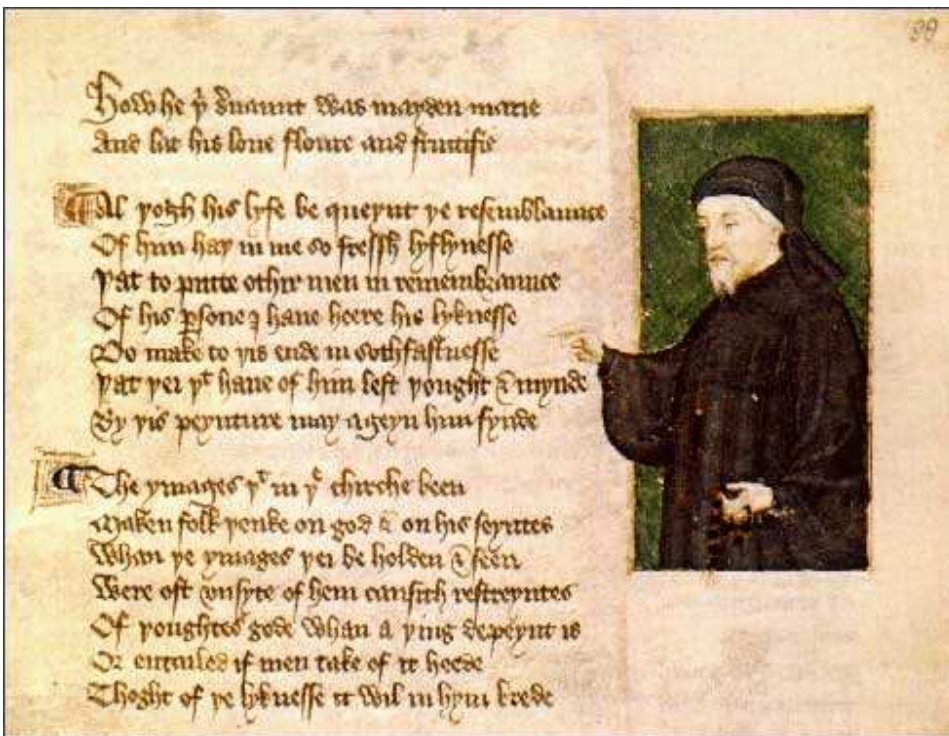 88
How he þͭ seruaunt was mayden marie
And lat his loue floure and fructifie
Al þogh his lyfe be queynt þe resemblaunce
Of him haþ in me so fressh lyflynesse
Þat to putte othir men in remembraunce
Of his p̱sone I haue heere his lyknesse
Do make to þis ende in sothfastnesse
Þat þei þͭ haue of him left þought & mynde
By þis peynture may ageyn him fynde
The ymages þͭ in þͤ chirche been
Maken folk þenke on god & on his seyntes
Whan þe ymages þei be holden & seen
Were oft vnsyte of hem causith restreyntes
Of þoughtes gode Whan a þing depeynt is
Or entailed if men take of it heede
Thoght of þe lyknesse it wil in hym brede